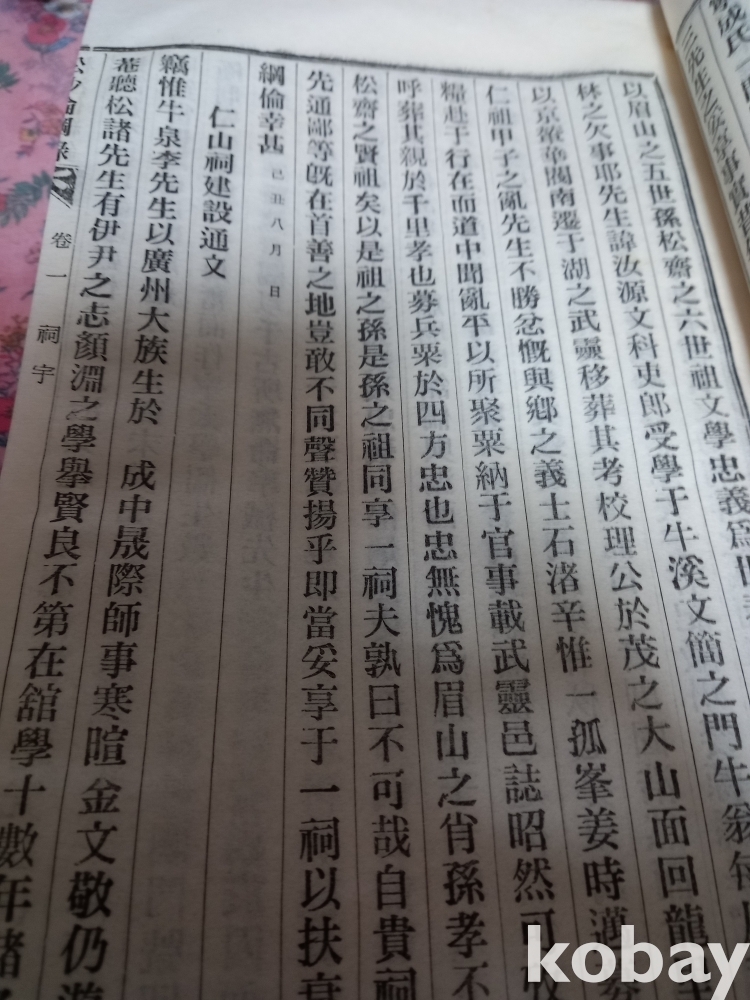 以眉山之五世孫松齋之六世祖文學忠義爲世
林之欠事耶先生諱汝源文科吏郎受學于牛溪文簡之門牛翁每
以京薇奄閥南遷于湖之武靈移葬其考校理公於茂之大山面回龍
仁祖甲子之亂先生不勝忿慨與鄉之義士石渚辛惟一孤峯姜時邁募
糧赴于行在而道中聞亂平以所聚粟納于官事載武靈邑誌昭然可攷
呼葬其親於千里孝也募兵粟於四方忠也忠無愧爲眉山之肖孫孝不
松齋之賢祖矣以是祖之孫是孫之祖同享一祠夫孰曰不可哉自貴祠
先通鄙等旣在首善之地豈敢不同聲贊揚乎即當妥享于一祠以扶衰
綱倫幸甚 己丑八月 日
仁山祠建設通文
竊惟牛泉李先生以廣州大族生於 成中晟際師事寒暄金文敬仍游
菴聽松諸先生有伊尹之志顏淵之學舉賢良不第在舘學十數年諸
卷一 祠宇
kobay